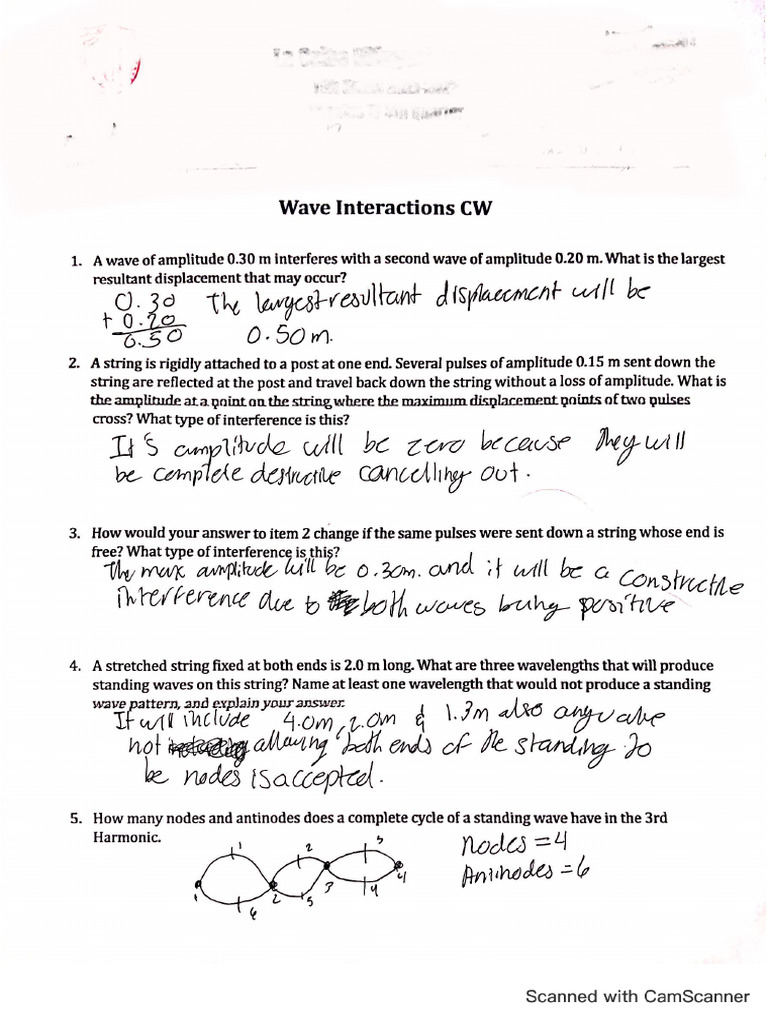 Wave Interactions CW
1. A wave of amplitude 0.30 m interferes with a second wave of amplitude 0.20 m. What is the largest
resultant displacement that may occur?
0.30 The largest resultant displaecment will be
+ 0.20
0.50 0.50 m.
2. A string is rigidly attached to a post at one end. Several pulses of amplitude 0.15 m sent down the
string are reflected at the post and travel back down the string without a loss of amplitude. What is
the amplitude at a point on the string where the maximum displacement points of two pulses
cross? What type of interference is this?
It's amplitude will be zero because they will
be complete destructive cancelling out.
3. How would your answer to item 2 change if the same pulses were sent down a string whose end is
free? What type of interference is this?
The max amplitude will be 0.30m. and it will be a constructive
interference due to both waves being positive
4. A stretched string fixed at both ends is 2.0 m long. What are three wavelengths that will produce
standing waves on this string? Name at least one wavelength that would not produce a standing
wave pattern, and explain your answer.
It will include 4.0m, 2.0m & 1.3m also any value
not allowing both ends of the standing to
be nodes is accepted.
5. How many nodes and antinodes does a complete cycle of a standing wave have in the 3rd
Harmonic.
Nodes = 4
Antinodes = 6
1 2 3
1 2 3 4
6 5 4
Scanned with CamScanner